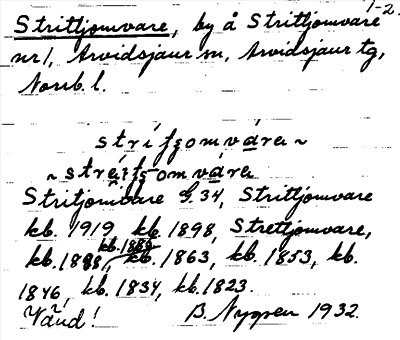 1-2.
Stritjomvare, by å Stritjomvare
nr 1, Arvidsjaur sn, Arvidsjaur tg,
Norrb. l.
strítjomvárɛ ~
~ stréitjomvárɛ
Stritjomvare G.34, Stritjomvare
kb. 1919, kb. 1898, Stretjomvare,
kb. 1889
kb. 1888, kb. 1863, kb. 1853, kb.
1846, kb. 1834, kb. 1823.
Vänd! B. Nygren 1932.